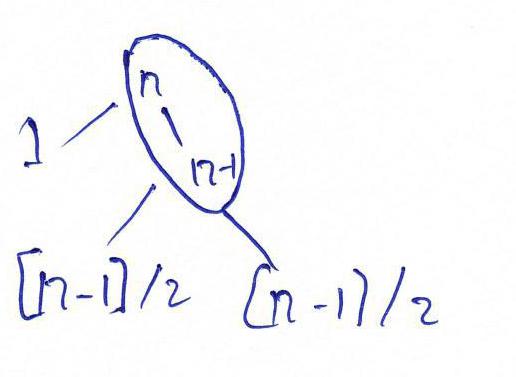 n
n-1
1
[n-1]/2
(n-1)/2